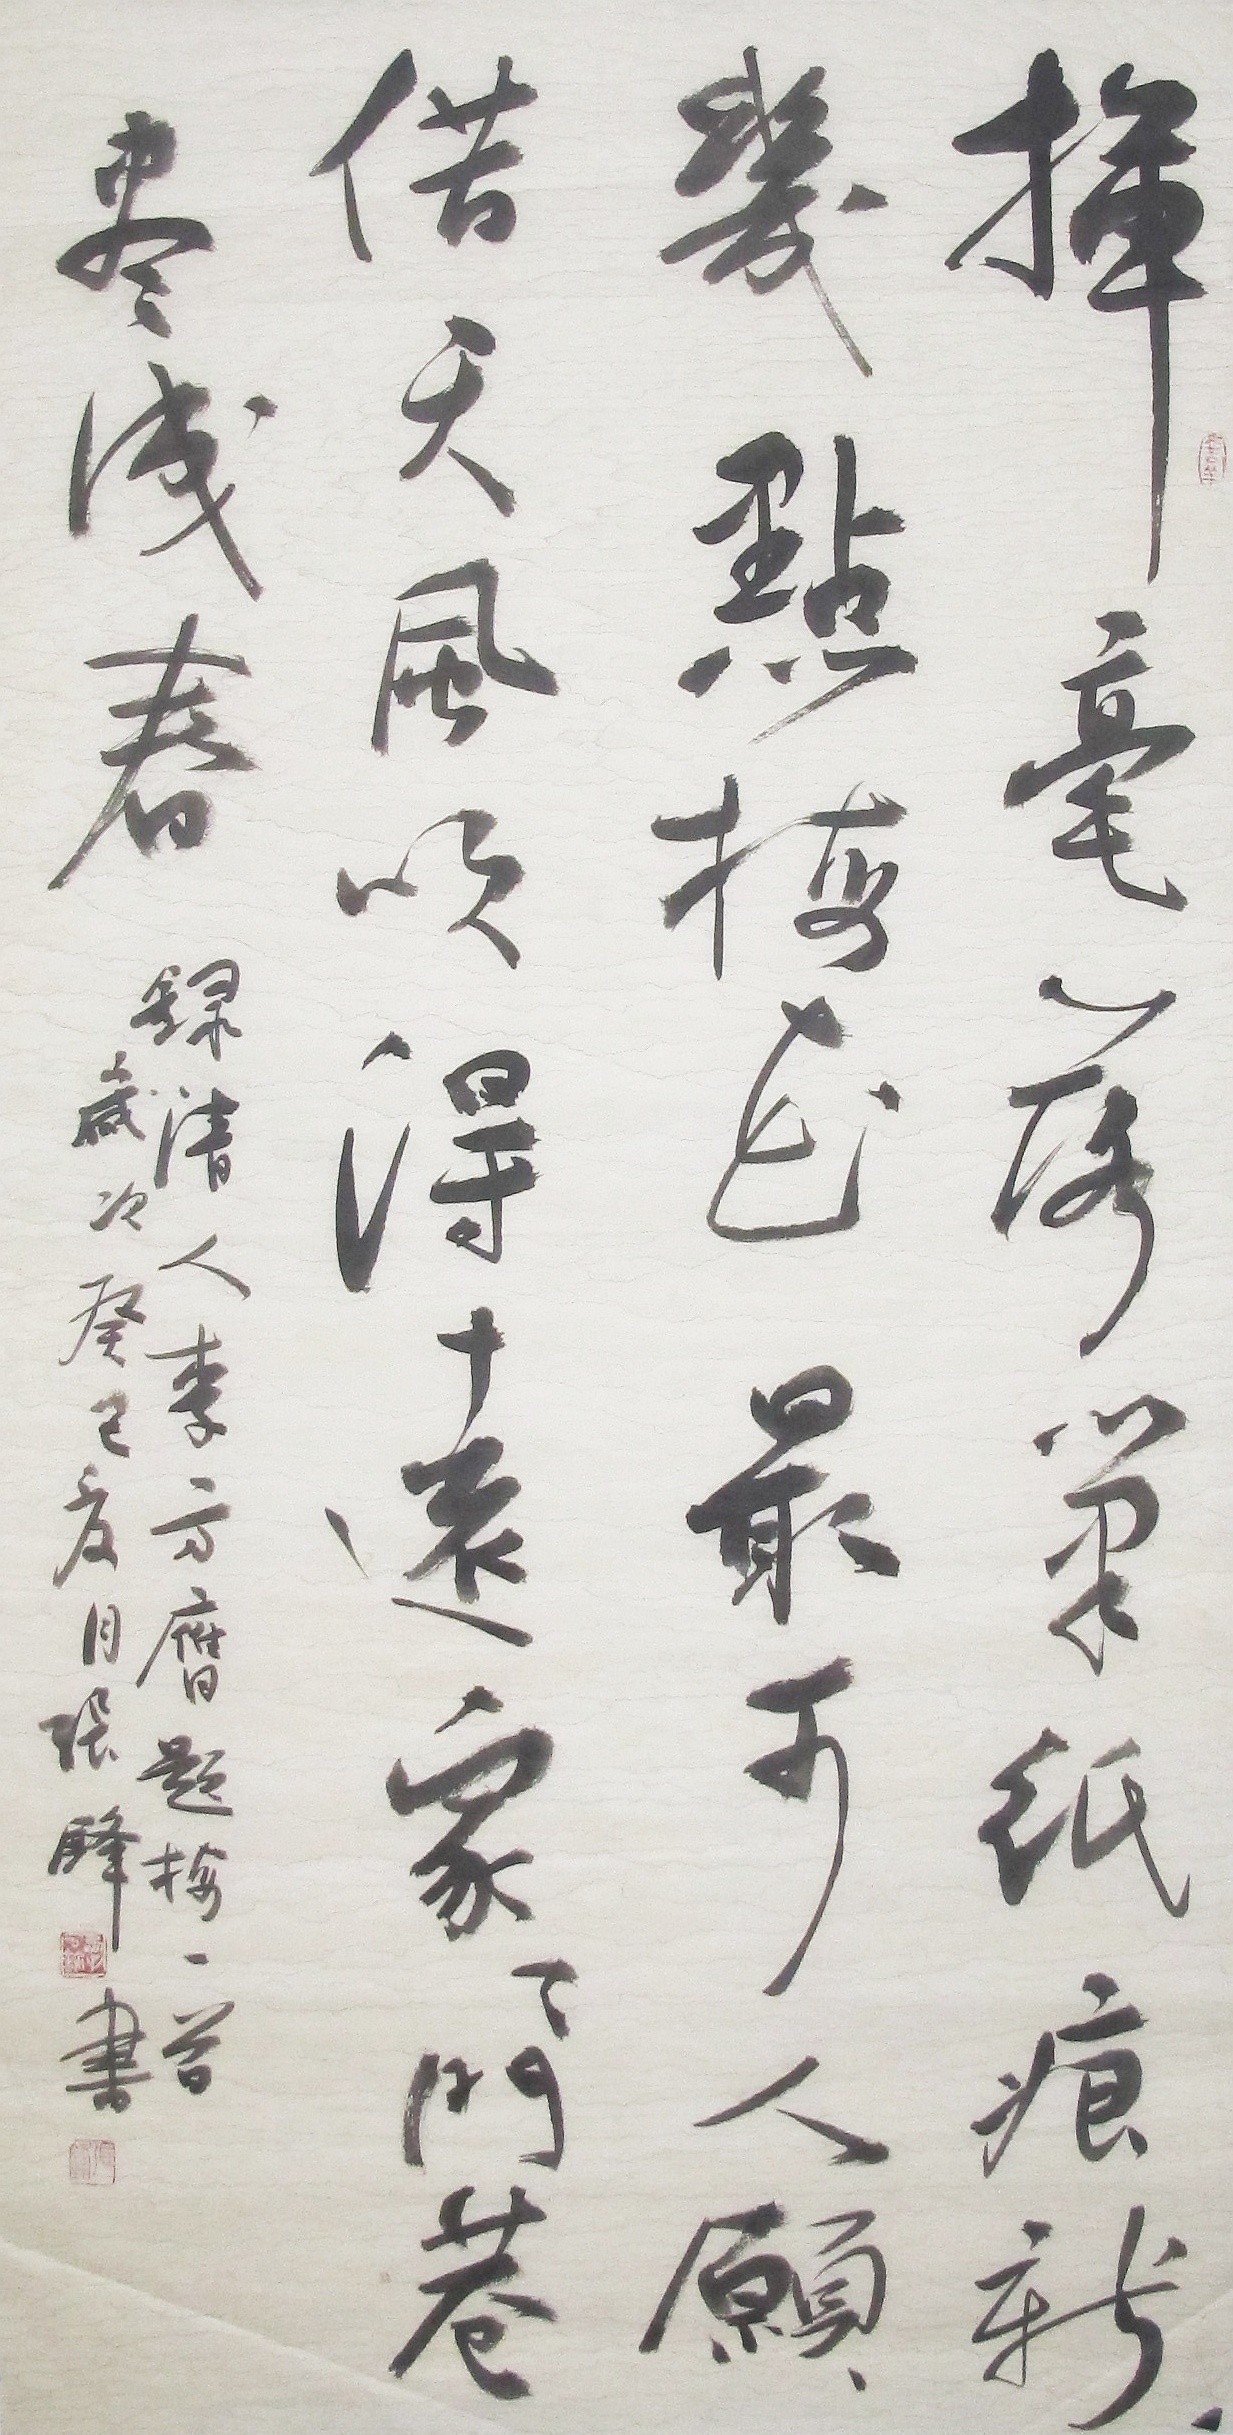 揮毫落筆紙痕新
幾點梅花最可人願
借天風吹得遠家〻門巷
盡成春
錄清人李方膺題梅一首
歲次癸巳夏月張書